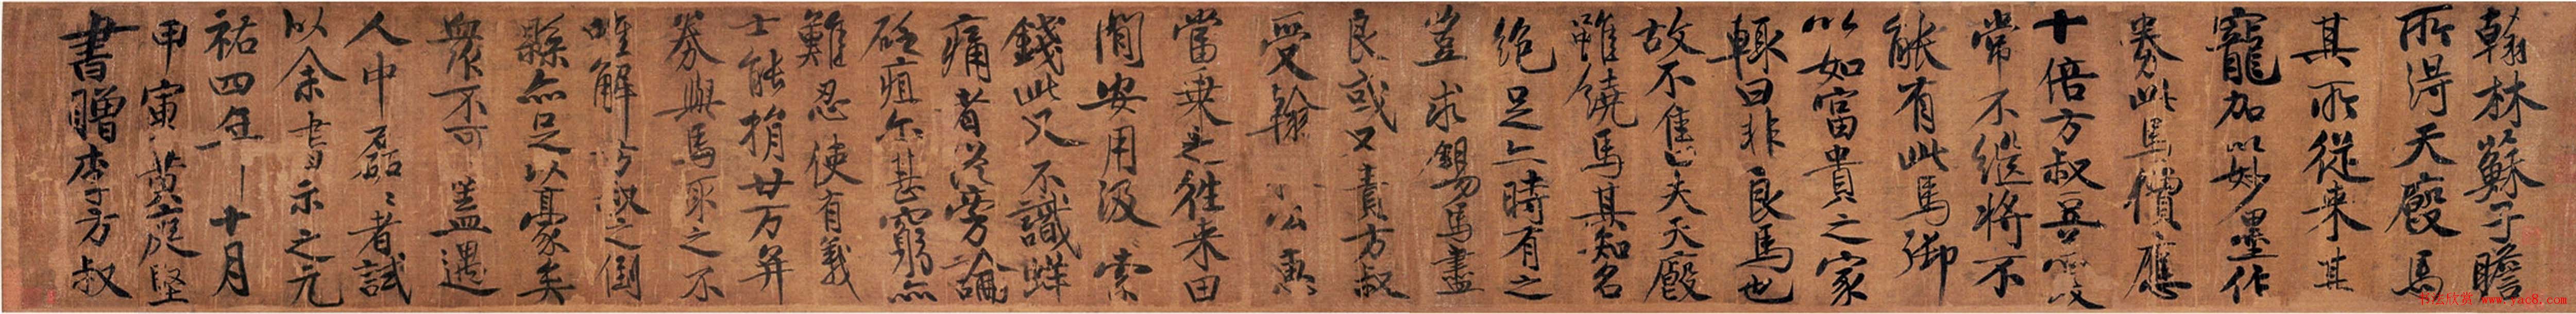 翰林蘇子瞻
所得天廄馬
其所從来甚
寵加以妙墨作
券此馬價應
十倍方叔豆羹
常不繼將不
能有此馬御
以如富貴之家
輙曰非良馬也
故不售夫天廄
雖饒馬其知名
绝足亦時有之
豈求錫馬盡
良或又責方叔
受翰公惠
當乘之往来田
閒安用汲索
錢此又不識蚌
痛者從旁論
砭疽尔甚窮亦
難忍使有義
士能捐廿万并
券與馬取之不
唯解方叔之倒
縣亦足以豪矣
衆不可盖遇
人中磊々者試
以余書示之元
祐四年十月
甲寅黄庭堅
書贈李方叔
书法欣赏 www.yac8.com